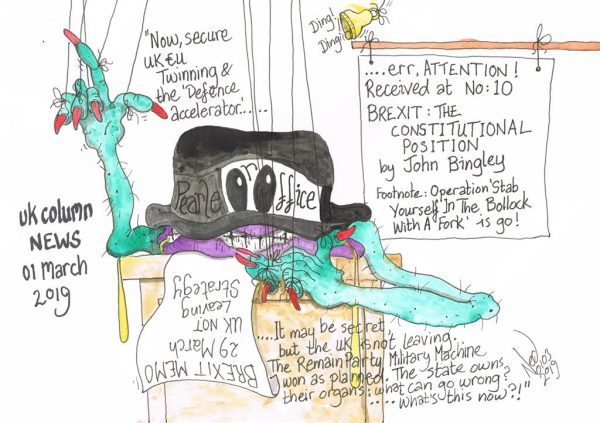 "Now, secure
UK EU
Twinning &
the 'Defence
accelerator'......
Ding!
Ding!
....err, ATTENTION!
Received at No:10
BREXIT: THE
CONSTITUTIONAL
POSITION
by John Bingley
Footnote: Operation 'Stab
Yourself In The Bollock
With A Fork' is go!
Pearle
or
Office
uk column
NEWS
01 March
2019
BREXIT MEMO
29 March
UK NOT
Leaving
Strategy
....It may be secret,
but the uk is not leaving.
The Remain Party Military Machine
won as planned. The state owns
their organs; what can go wrong?
.....What's this now?!"
2019